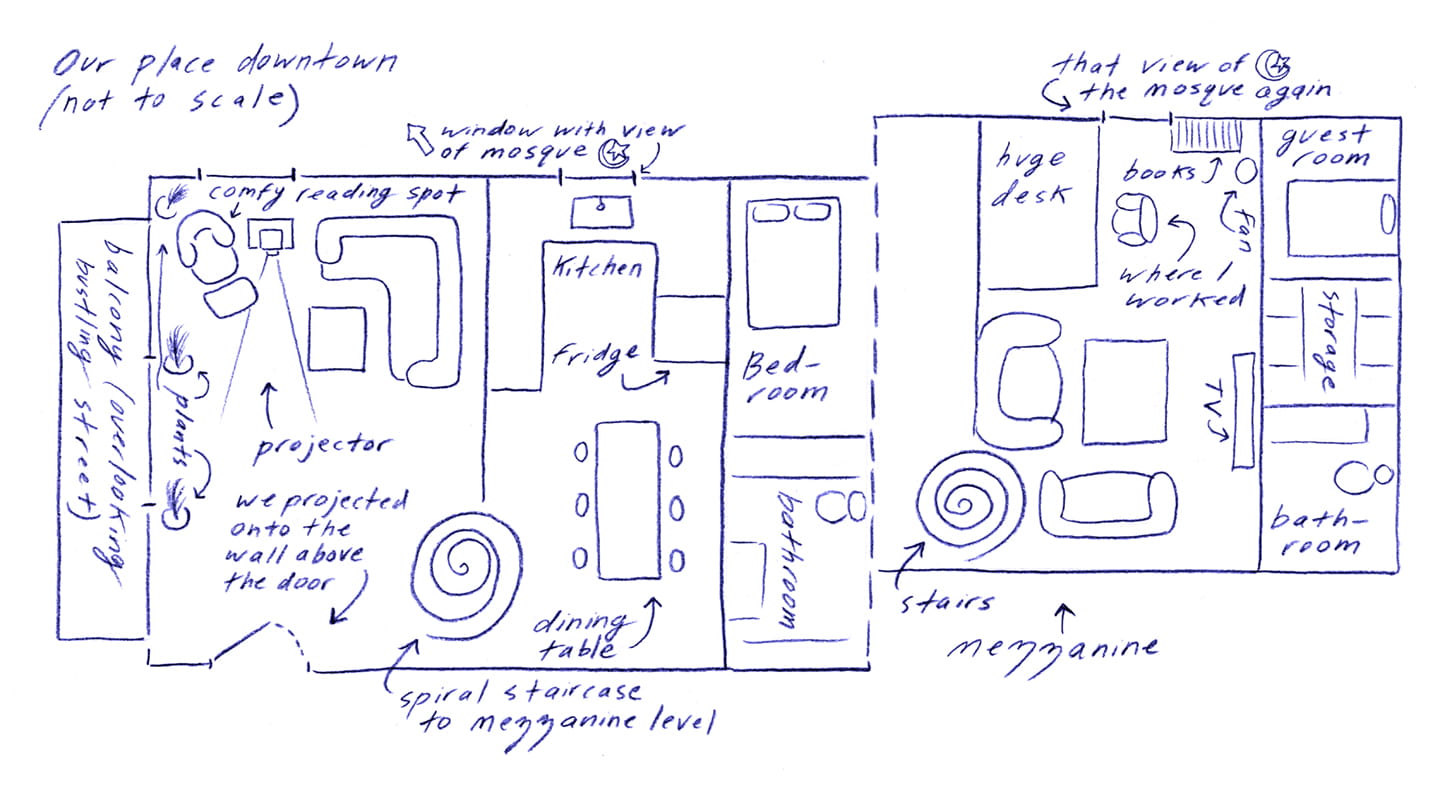 Our place downtown
(not to scale)
window with view
of mosque
that view of
the mosque again
comfy reading spot
balcony (overlooking
bustling street)
plants
projector
we projected
onto the
wall above
the door
Kitchen
fridge
dining
table
spiral staircase
to mezzanine level
Bed-
room
bathroom
huge
desk
books
fan
where I
worked
TV
stairs
mezzanine
guest
room
storage
bath-
room